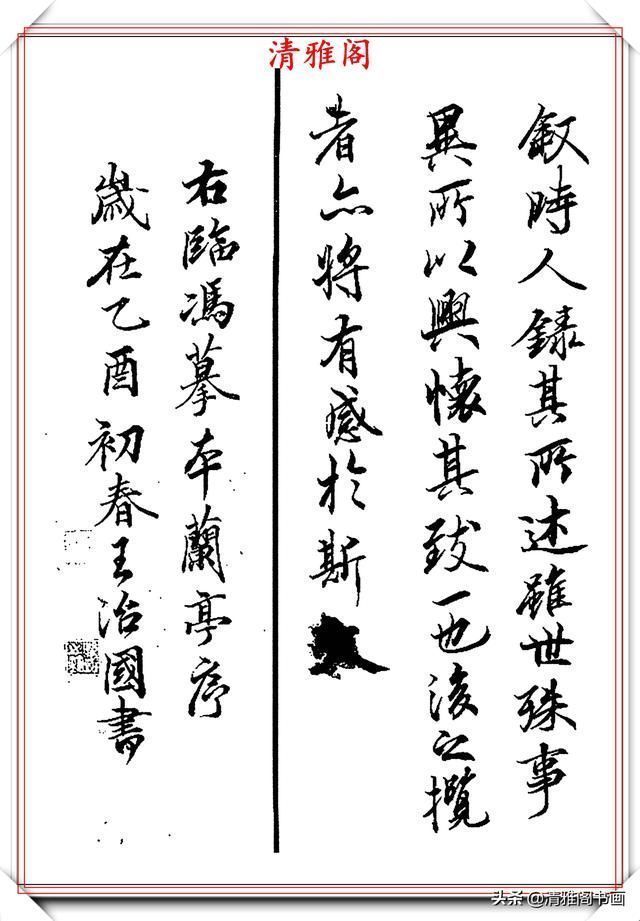 清雅阁
叙時人錄其所述雖世殊事
異所以興懷其致一也後之攬
者亦將有感於斯
右臨馮摹本蘭亭序
歲在乙酉初春王治國書
头条@清雅阁书画